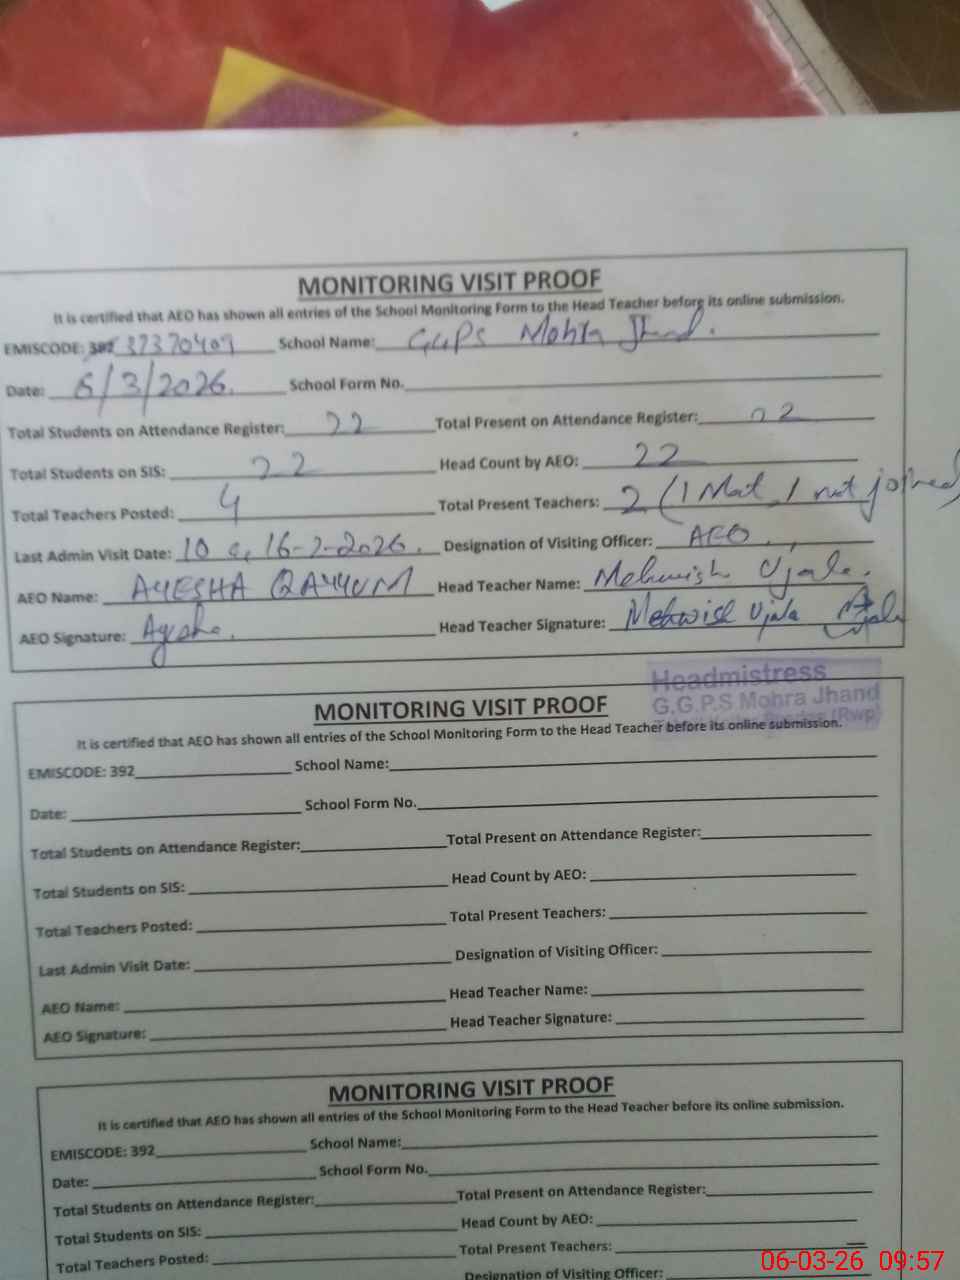 MONITORING VISIT PROOF
It is certified that AEO has shown all entries of the School Monitoring Form to the Head Teacher before its online submission.
EMISCODE: 37370409 School Name: GGPS Mohra Jhand.
Date: 6/3/2026. School Form No.
Total Students on Attendance Register: 22 Total Present on Attendance Register: 22
Total Students on SIS: 22 Head Count by AEO: 22
Total Teachers Posted: 4 Total Present Teachers: 2 (1 Mat, 1 not joined
Last Admin Visit Date: 16-2-2026. Designation of Visiting Officer: AEO
AEO Name: AYESHA QAYYUM Head Teacher Name: Mehwish Ujala.
AEO Signature: Aysha. Head Teacher Signature: Mehwish Ujala
Headmistress
G.G.P.S Mohra Jhand
(Rwp)
MONITORING VISIT PROOF
It is certified that AEO has shown all entries of the School Monitoring Form to the Head Teacher before its online submission.
EMISCODE: 392 School Name:
Date: School Form No.
Total Students on Attendance Register: Total Present on Attendance Register:
Total Students on SIS: Head Count by AEO:
Total Teachers Posted: Total Present Teachers:
Last Admin Visit Date: Designation of Visiting Officer:
AEO Name: Head Teacher Name:
AEO Signature: Head Teacher Signature:
MONITORING VISIT PROOF
It is certified that AEO has shown all entries of the School Monitoring Form to the Head Teacher before its online submission.
EMISCODE: 392 School Name:
Date: School Form No.
Total Students on Attendance Register: Total Present on Attendance Register:
Total Students on SIS: Head Count by AEO:
Total Teachers Posted: Total Present Teachers:
Designation of Visiting Officer:
06-03-26 09:57